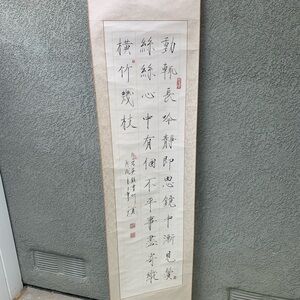 動輒長吟靜即思鏡中漸見鬢
絲絲心中有個不平事盡寄縱
橫竹幾枝